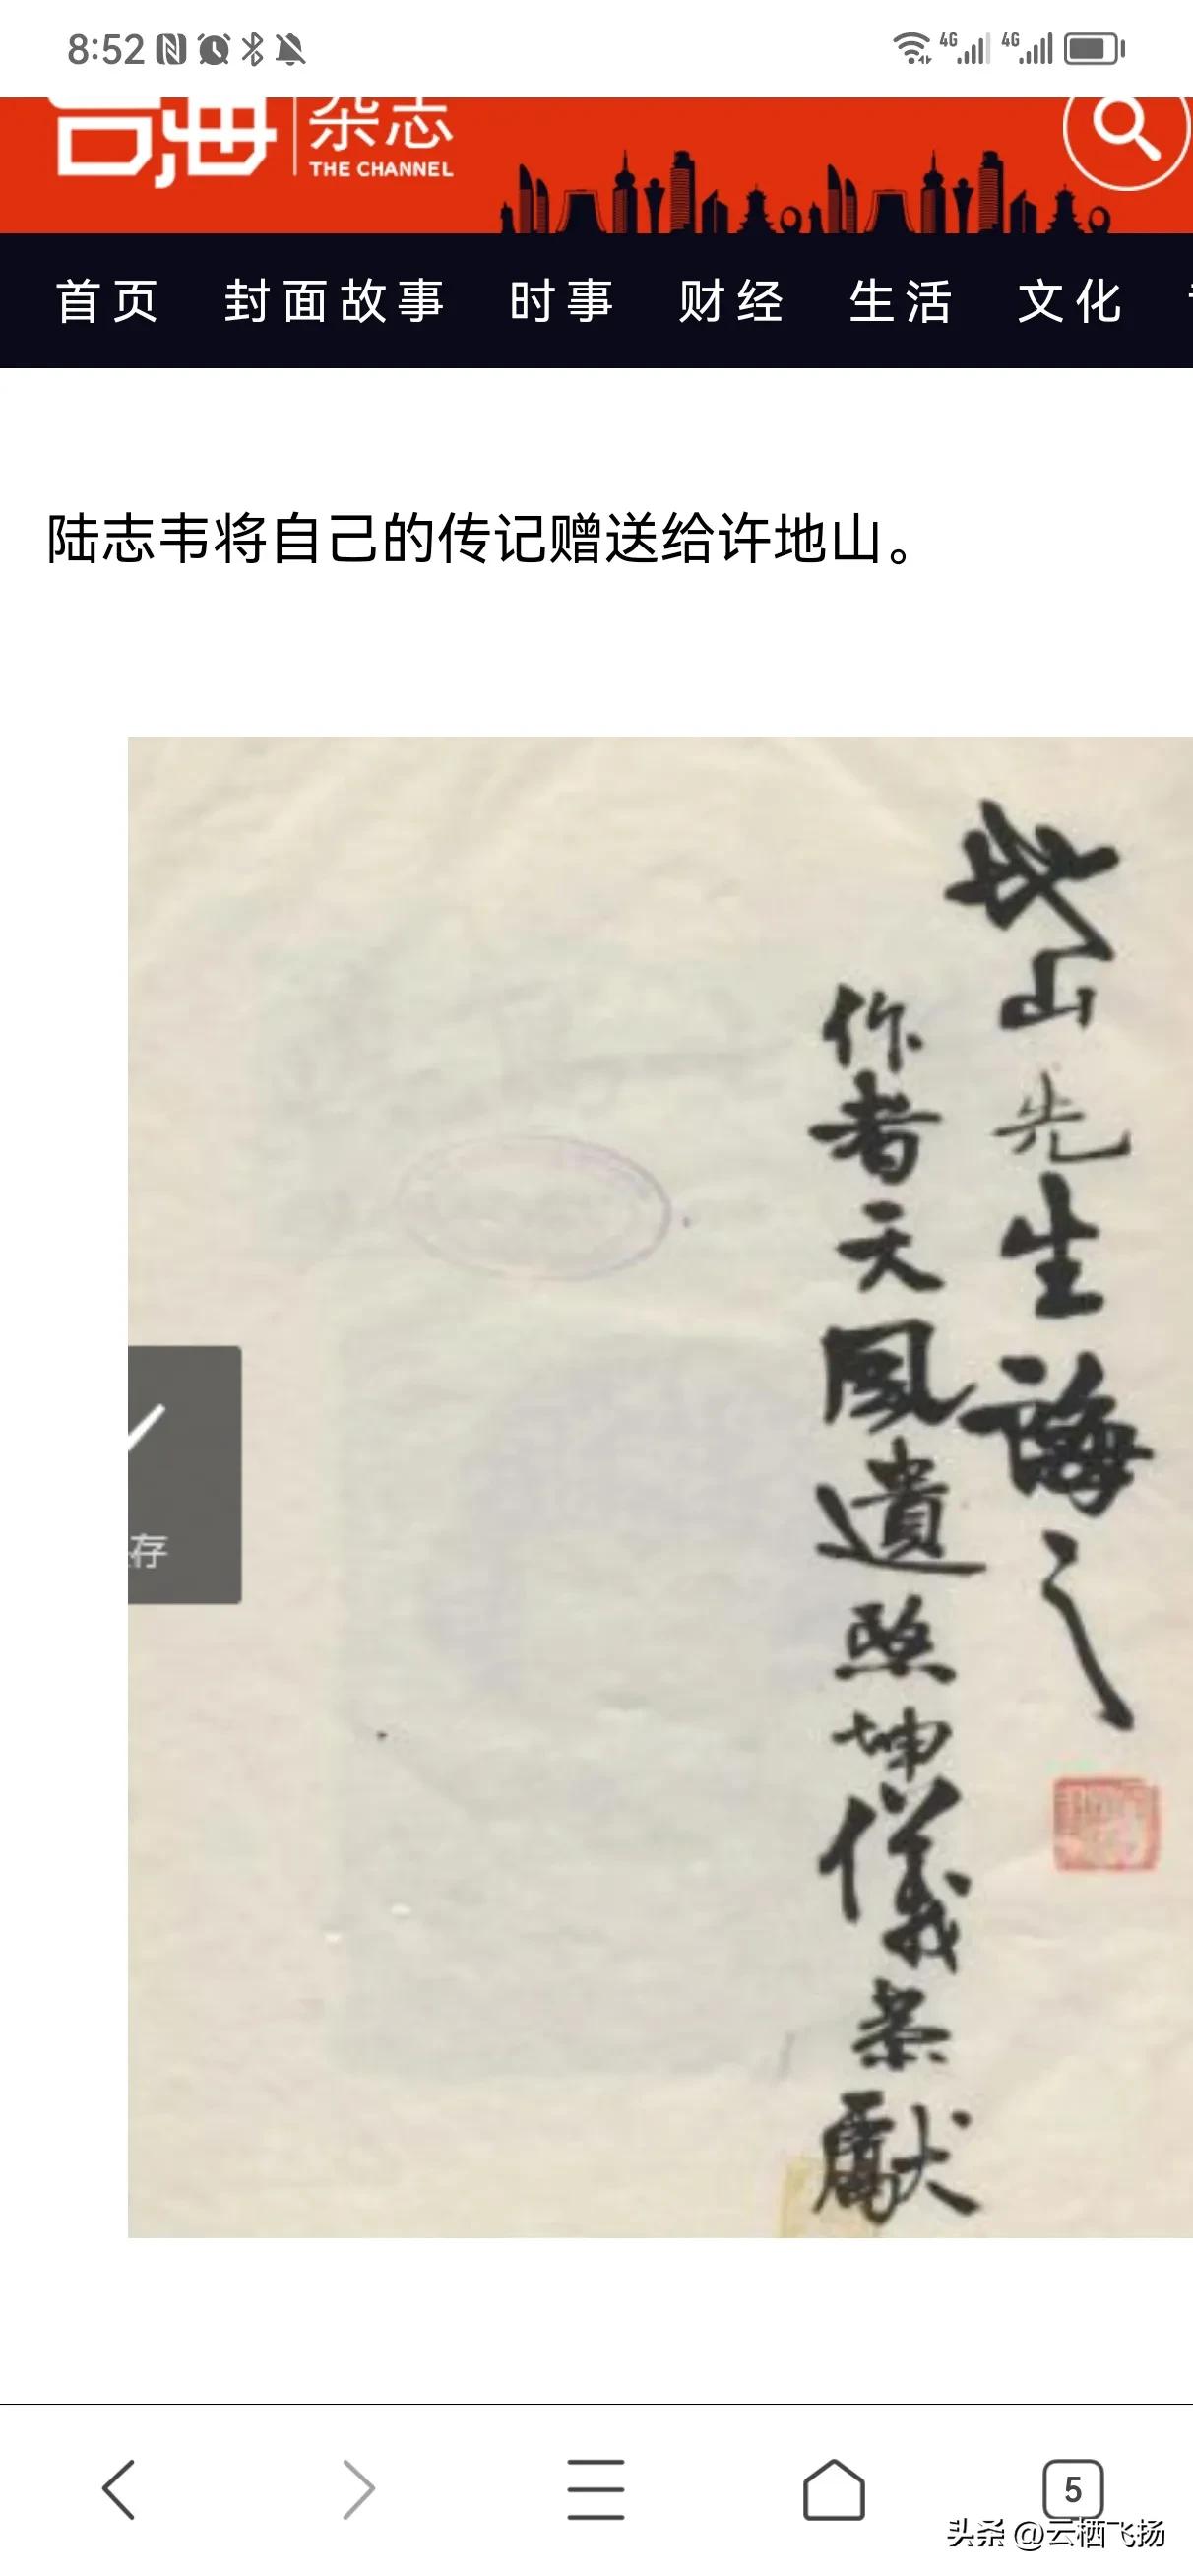 8:52
4G 4G
台海 杂志
THE CHANNEL
首页 封面故事 时事 财经 生活 文化
陆志韦将自己的传记赠送给许地山。
地山先生誨之
作者天風遺照坤儀恭獻
存
5
头条 @云栖飞扬